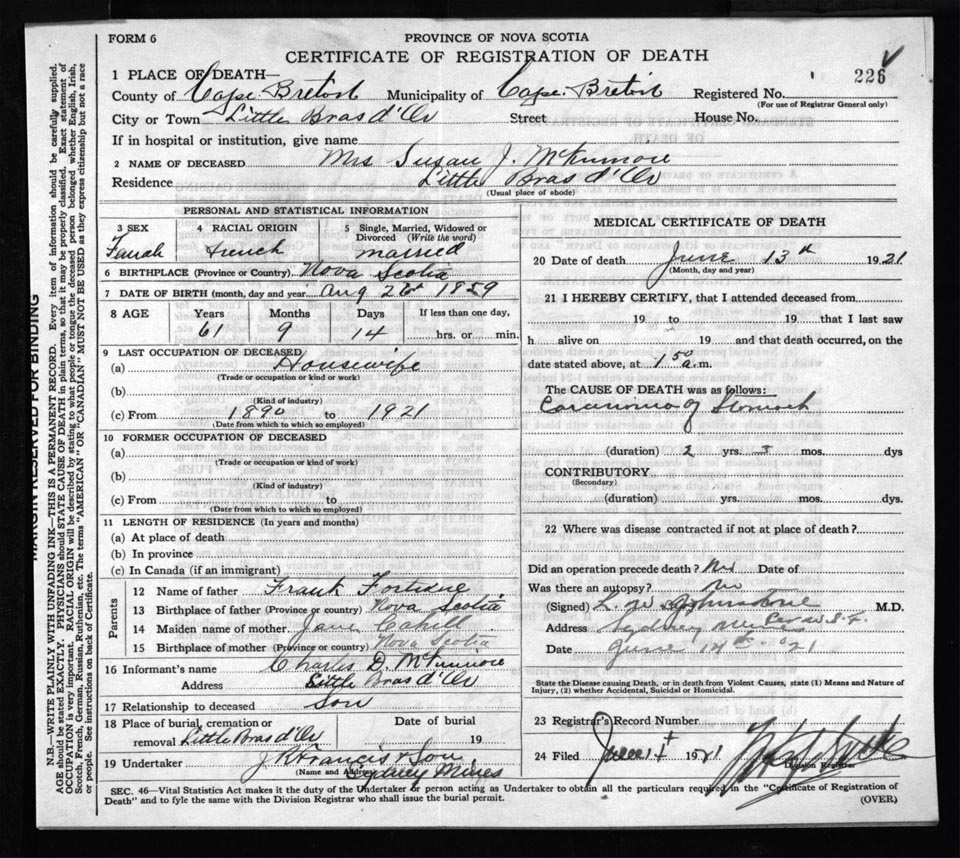 FORM 6
PROVINCE OF NOVA SCOTIA
CERTIFICATE OF REGISTRATION OF DEATH
226
1 PLACE OF DEATH—
County of Cape Breton Municipality of Cape Breton Registered No.
(For use of Registrar General only)
City or Town Little Bras d'Or Street House No.
If in hospital or institution, give name
2 NAME OF DECEASED Mrs Susan J. McKinnon
Residence Little Bras d'Or
(Usual place of abode)
PERSONAL AND STATISTICAL INFORMATION
3 SEX 4 RACIAL ORIGIN 5 Single, Married, Widowed or Divorced (Write the word)
Female French married
6 BIRTHPLACE (Province or Country) Nova Scotia
7 DATE OF BIRTH (month, day and year) Aug 26th 1859
8 AGE Years Months Days If less than one day,
61 9 14 hrs. or min.
9 LAST OCCUPATION OF DECEASED
(a) Housewife
(Trade or occupation or kind or work)
(b)
(Kind of industry)
(c) From 1890 to 1921
(Date from which to which so employed)
10 FORMER OCCUPATION OF DECEASED
(a)
(Trade or occupation or kind of work)
(b)
(Kind of industry)
(c) From to
(Date from which to which so employed)
11 LENGTH OF RESIDENCE (In years and months)
(a) At place of death
(b) In province
(c) In Canada (if an immigrant)
Parents
12 Name of father Frank
13 Birthplace of father (Province or country) Nova Scotia
14 Maiden name of mother Jane Cahill
15 Birthplace of mother (Province or country) Nova Scotia
16 Informant's name Charles D. McKinnon
Address Little Bras d'Or
17 Relationship to deceased Son
18 Place of burial, cremation or removal Little Bras d'Or Date of burial 19
19 Undertaker J R Francis & Son
(Name and Address) Sydney Mines
MEDICAL CERTIFICATE OF DEATH
20 Date of death June 13th 1921
(Month, day and year)
21 I HEREBY CERTIFY, that I attended deceased from
19 to 19 that I last saw
h alive on 19 and that death occurred, on the
date stated above, at 1 50 a.m.
The CAUSE OF DEATH was as follows:
Carcinoma of Stomach
(duration) 2 yrs. 3 mos. dys
CONTRIBUTORY
(Secondary)
(duration) yrs. mos. dys.
22 Where was disease contracted if not at place of death?
Did an operation precede death? No Date of
Was there an autopsy? No
(Signed) L. W. Johnstone M.D.
Address Sydney Mines
Date June 14th 21
State the Disease causing Death, or in death from Violent Causes, state (1) Means and Nature of Injury, (2) whether Accidental, Suicidal or Homicidal.
23 Registrar's Record Number
24 Filed June 1921
Division Registrar
SEC. 46—Vital Statistics Act makes it the duty of the Undertaker or person acting as Undertaker to obtain all the particulars required in the "Certificate of Registration of
Death" and to fyle the same with the Division Registrar who shall issue the burial permit.
(OVER)
MARGIN RESERVED FOR BINDING
N.B.—WRITE PLAINLY WITH UNFADING INK—THIS IS A PERMANENT RECORD. Every item of information should be carefully supplied.
AGE should be stated EXACTLY. PHYSICIANS should STATE CAUSE OF DEATH in plain terms, so that it may be properly classified. Exact statement of
OCCUPATION is very important. RACIAL ORIGIN will be described by stating to what people or tongue the deceased person belonged whether English, Irish,
Scotch, French, German, Russian, Ruthenian, etc. The terms "AMERICAN" OR "CANADIAN" MUST NOT BE USED as they express citizenship but not a race
or people. See instructions on back of Certificate.